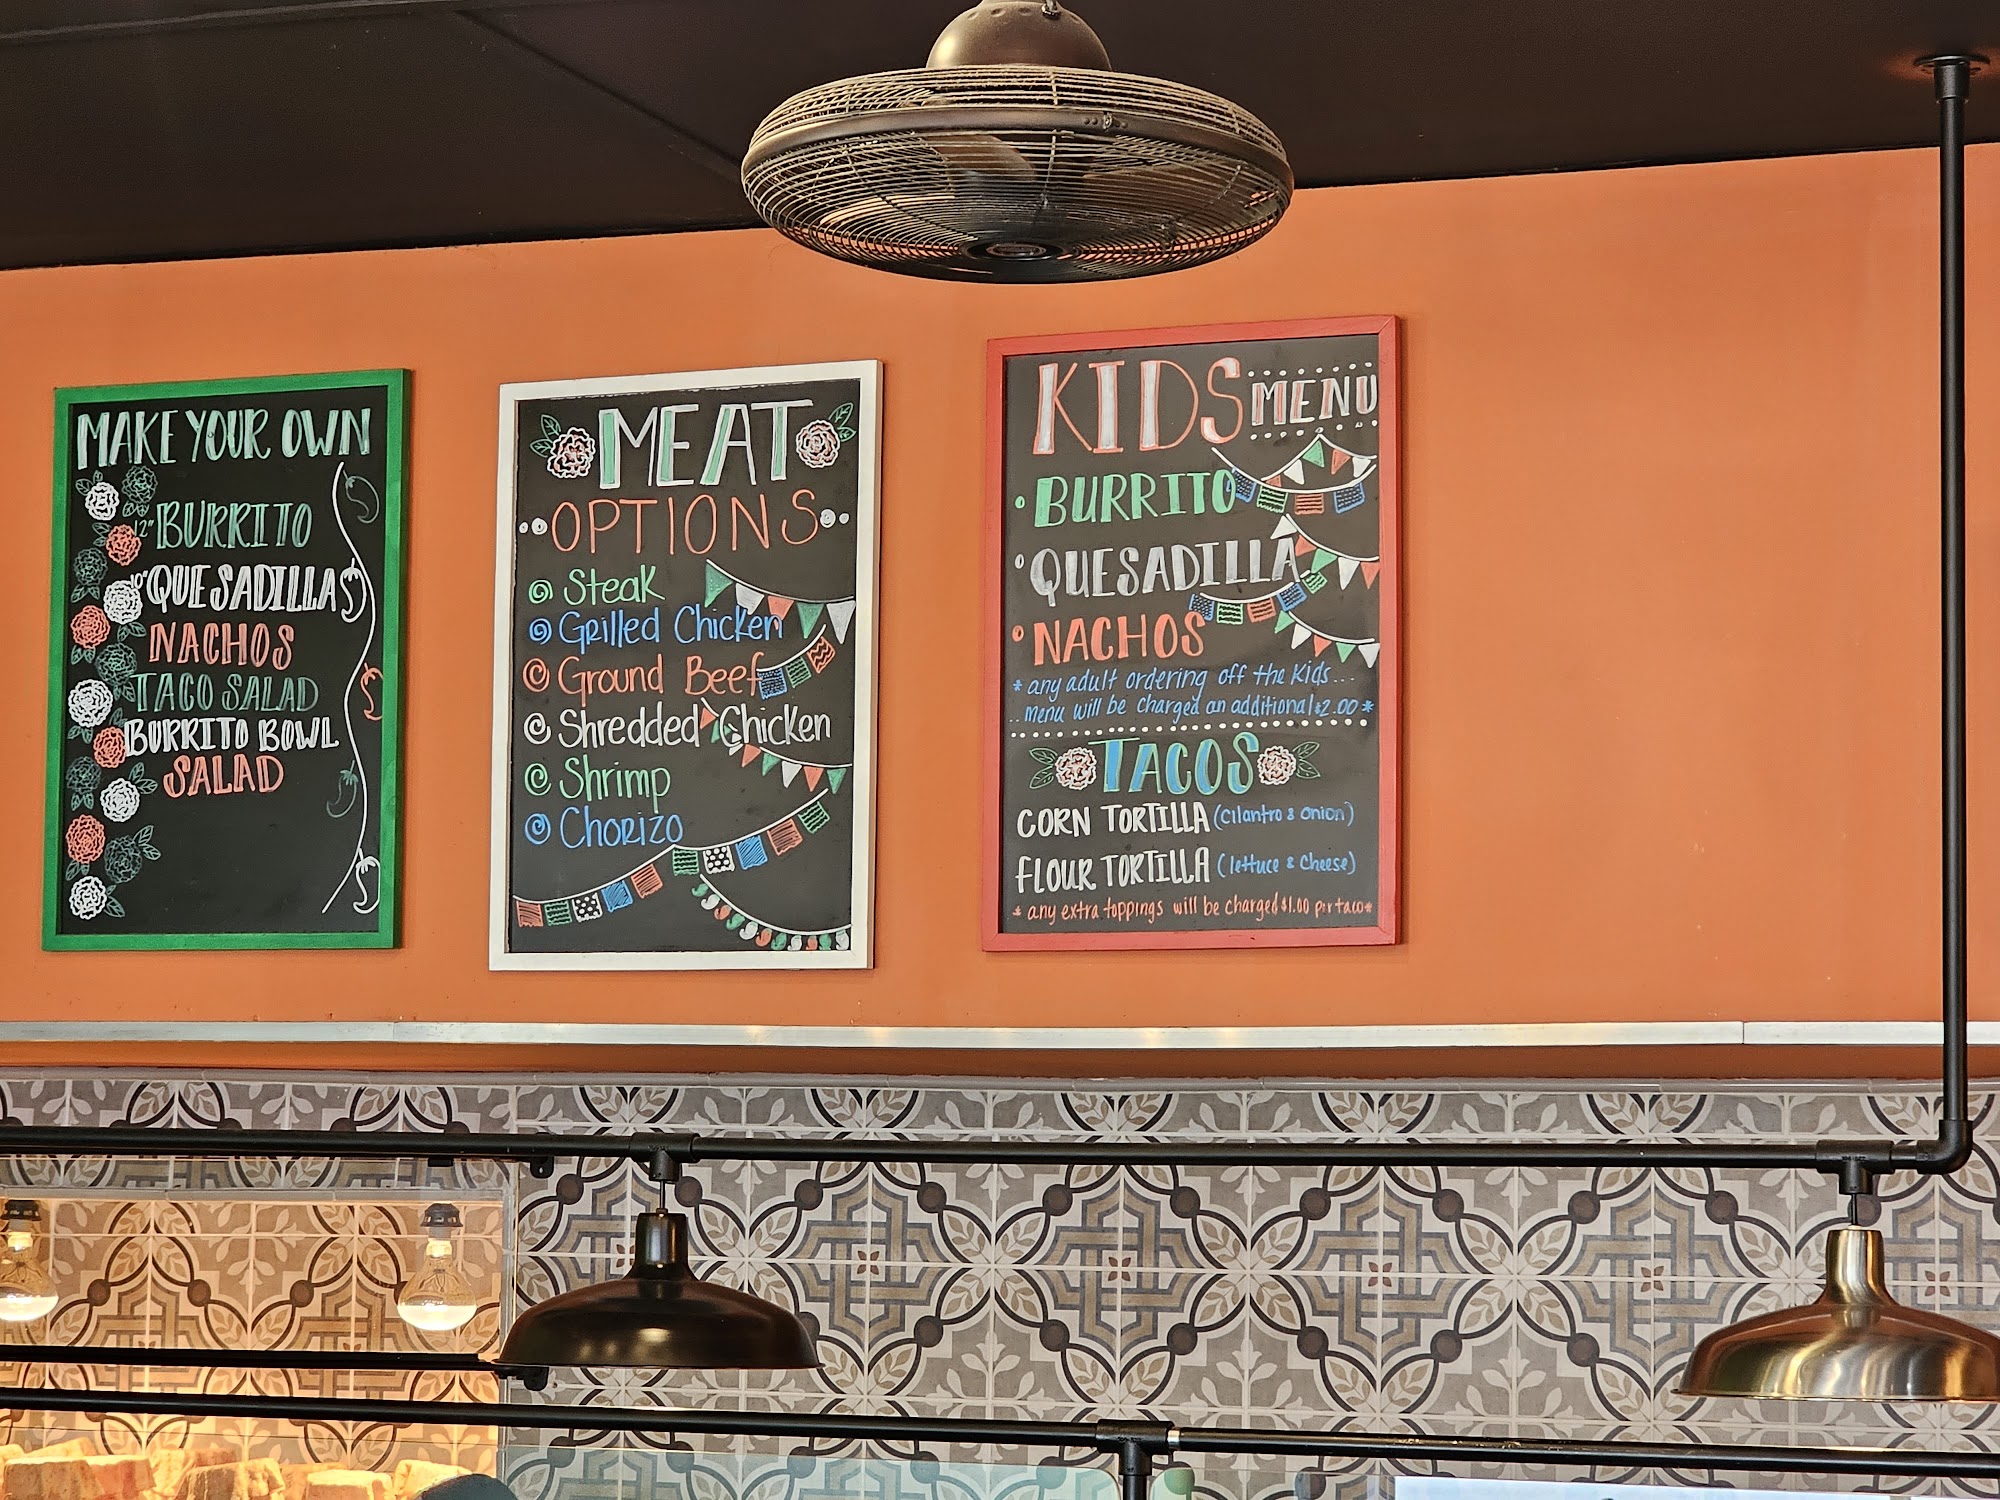 MAKE YOUR OWN
12" BURRITO
10" QUESADILLAS
NACHOS
TACO SALAD
BURRITO BOWL
SALAD
MEAT
OPTIONS
Steak
Grilled Chicken
Ground Beef
Shredded Chicken
Shrimp
Chorizo
KIDS MENU
BURRITO
QUESADILLA
NACHOS
* any adult ordering off the Kids...
.. menu will be charged an additional $2.00 *
TACOS
CORN TORTILLA (cilantro & onion)
FLOUR TORTILLA (lettuce & Cheese)
* any extra toppings will be charged $1.00 per taco *